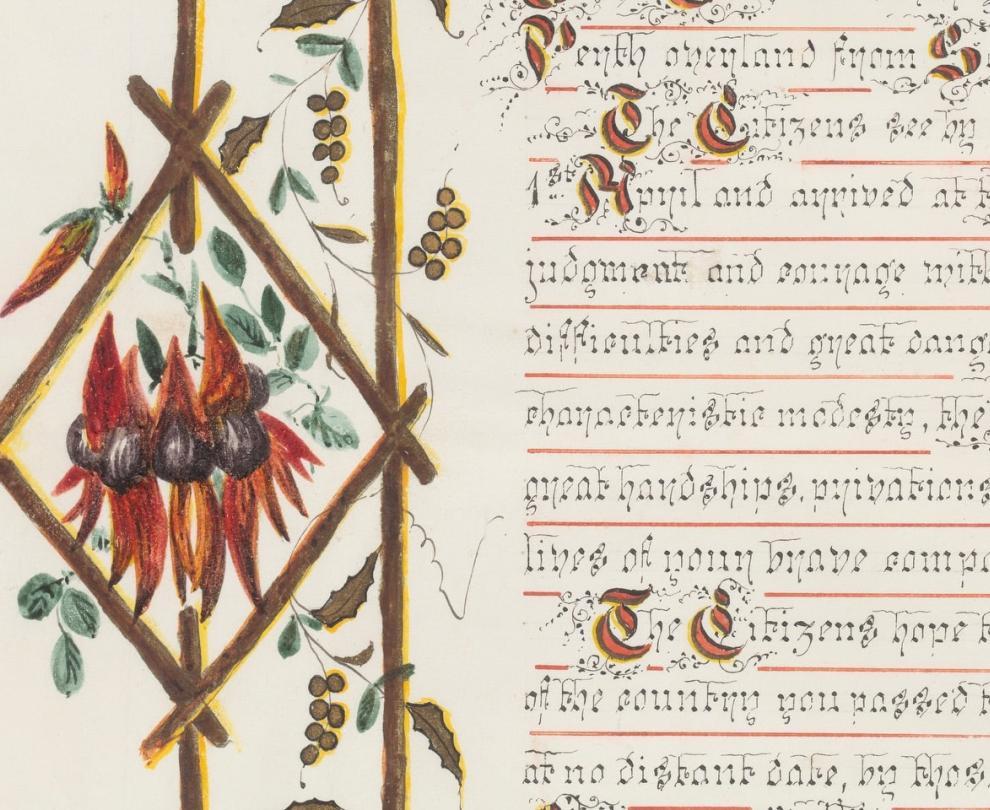 Perth overland from S
The Citizens see by
1st April and arrived at t
judgment and courage with
difficulties and great dang
characteristic modesty, the
great hardships, privations
lives of your brave comp
The Citizens hope t
of the country you passed t
at no distant date, by thos